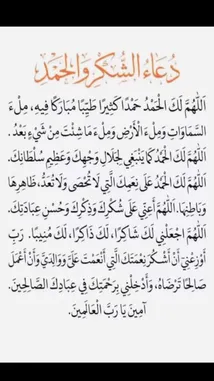 دُعَاءُ الشُّكْرِ وَالْحَمْدِ
اَللّٰهُمَّ لَكَ الْحَمْدُ حَمْدًا كَثِيرًا طَيِّبًا مُبَارَكًا فِيهِ، مِلْءَ
السَّمَاوَاتِ وَمِلْءَ الْأَرْضِ وَمِلْءَ مَا شِئْتَ مِنْ شَيْءٍ بَعْدُ.
اَللّٰهُمَّ لَكَ الْحَمْدُ كَمَا يَنْبَغِي لِجَلَالِ وَجْهِكَ وَعَظِيمِ سُلْطَانِكَ.
اَللّٰهُمَّ لَكَ الْحَمْدُ عَلَى نِعَمِكَ الَّتِي لَا تُحْصَى وَلَا تُعَدُّ، ظَاهِرِهَا
وَبَاطِنِهَا. اَللّٰهُمَّ أَعِنِّي عَلَى شُكْرِكَ وَذِكْرِكَ وَحُسْنِ عِبَادَتِكَ.
اَللّٰهُمَّ اجْعَلْنِي لَكَ شَاكِرًا، لَكَ ذَاكِرًا، لَكَ مُنِيبًا. رَبِّ
أَوْزِعْنِي أَنْ أَشْكُرَ نِعْمَتَكَ الَّتِي أَنْعَمْتَ عَلَيَّ وَعَلَى وَالِدَيَّ وَأَنْ أَعْمَلَ
صَالِحًا تَرْضَاهُ، وَأَدْخِلْنِي بِرَحْمَتِكَ فِي عِبَادِكَ الصَّالِحِينَ.
آمِينَ يَا رَبَّ الْعَالَمِينَ.